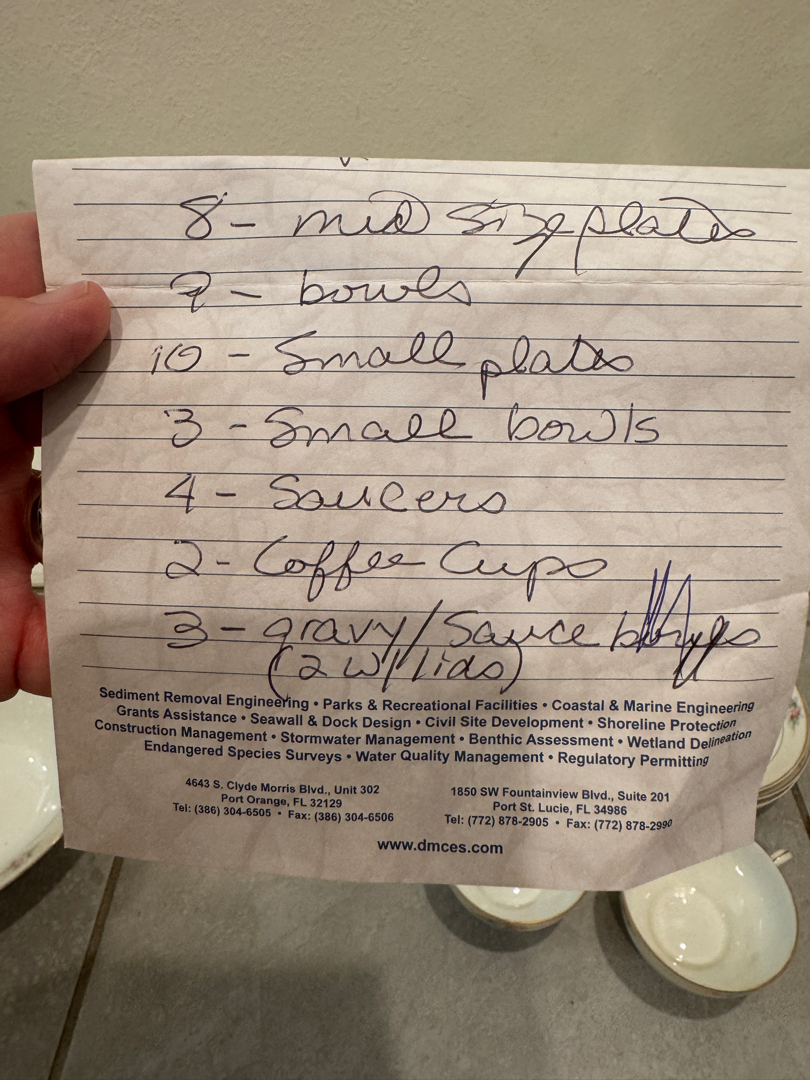 8 - mid size plates
- bowls
10 - Small plates
3 - Small bowls
4 - Saucers
2 - Coffee Cups
3 - gravy/Sauce
(2 w/lids)
Sediment Removal Engineering • Parks & Recreational Facilities • Coastal & Marine Engineering
Grants Assistance • Seawall & Dock Design • Civil Site Development • Shoreline Protection
Construction Management • Stormwater Management • Benthic Assessment • Wetland Delineation
Endangered Species Surveys • Water Quality Management • Regulatory Permitting
4643 S. Clyde Morris Blvd., Unit 302
Port Orange, FL 32129
Tel: (386) 304-6505 • Fax: (386) 304-6506
1850 SW Fountainview Blvd., Suite 201
Port St. Lucie, FL 34986
Tel: (772) 878-2905 • Fax: (772) 878-2990
www.dmces.com